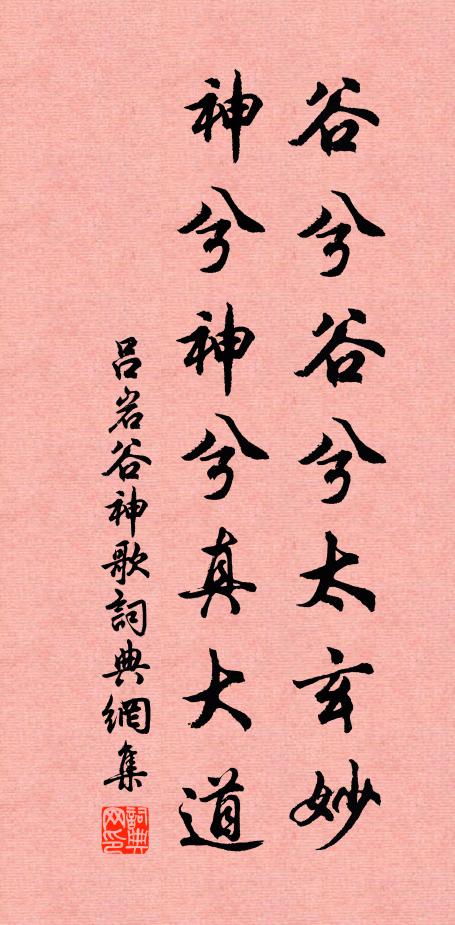 谷兮谷兮太玄妙
神兮神兮真大道
吕岩谷神歌詞典網集
詞典網印